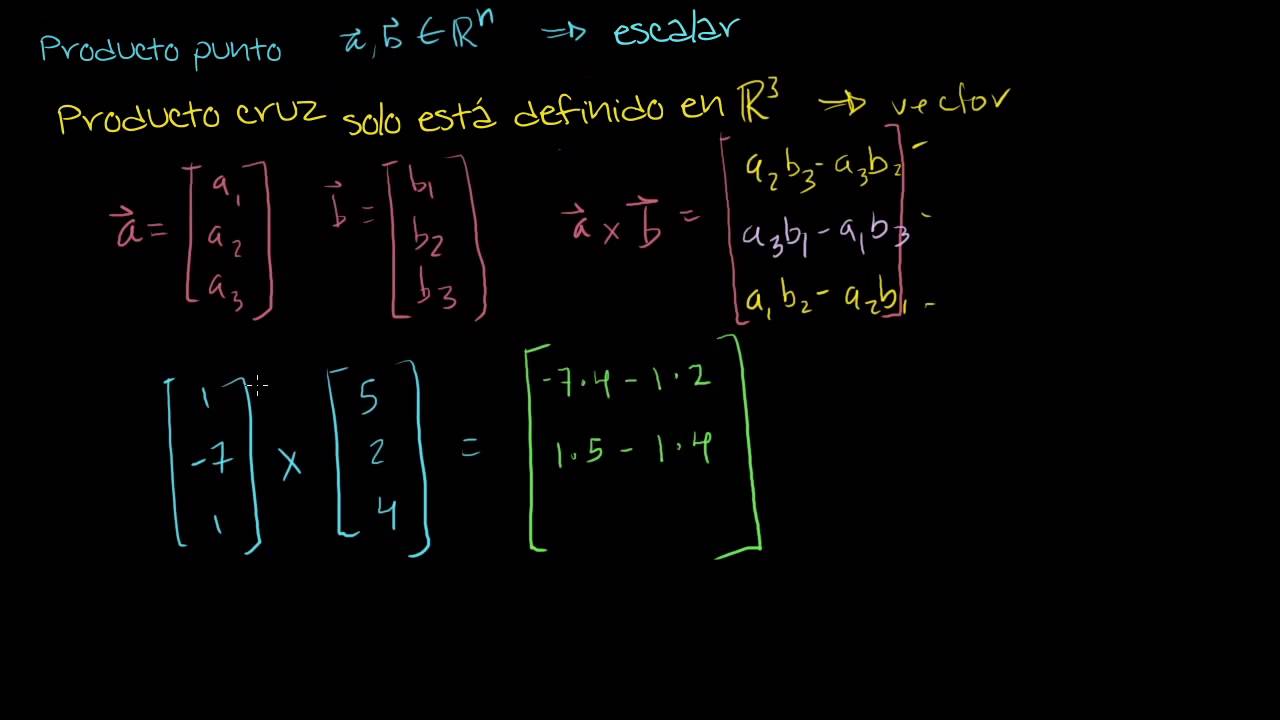 Producto punto a⃗, b⃗ ∈ ℝⁿ ⇒ escalar
Producto cruz solo está definido en ℝ³ ⇒ vector
a⃗ = [a₁ a₂ a₃] b⃗ = [b₁ b₂ b₃] a⃗ × b⃗ = [a₂b₃ - a₃b₂
a₃b₁ - a₁b₃
a₁b₂ - a₂b₁]
[1 -7 1] × [5 2 4] = [-7·4 - 1·2
1·5 - 1·4]